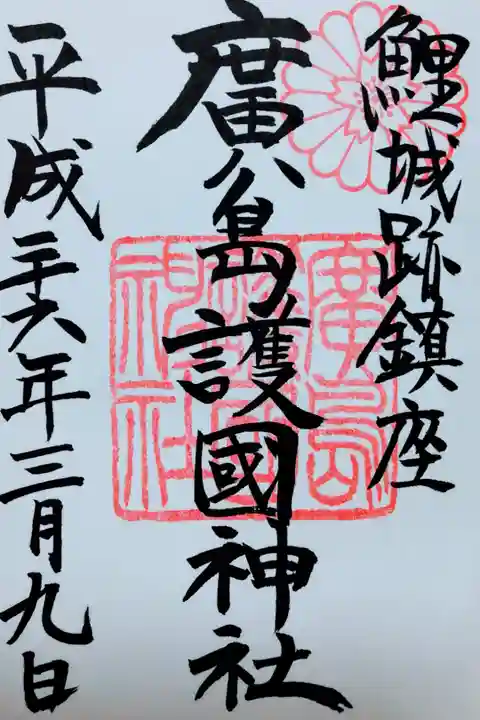 鯉城跡鎮座
廣島護國神社
平成二十六年三月九日
廣島
護國
神社